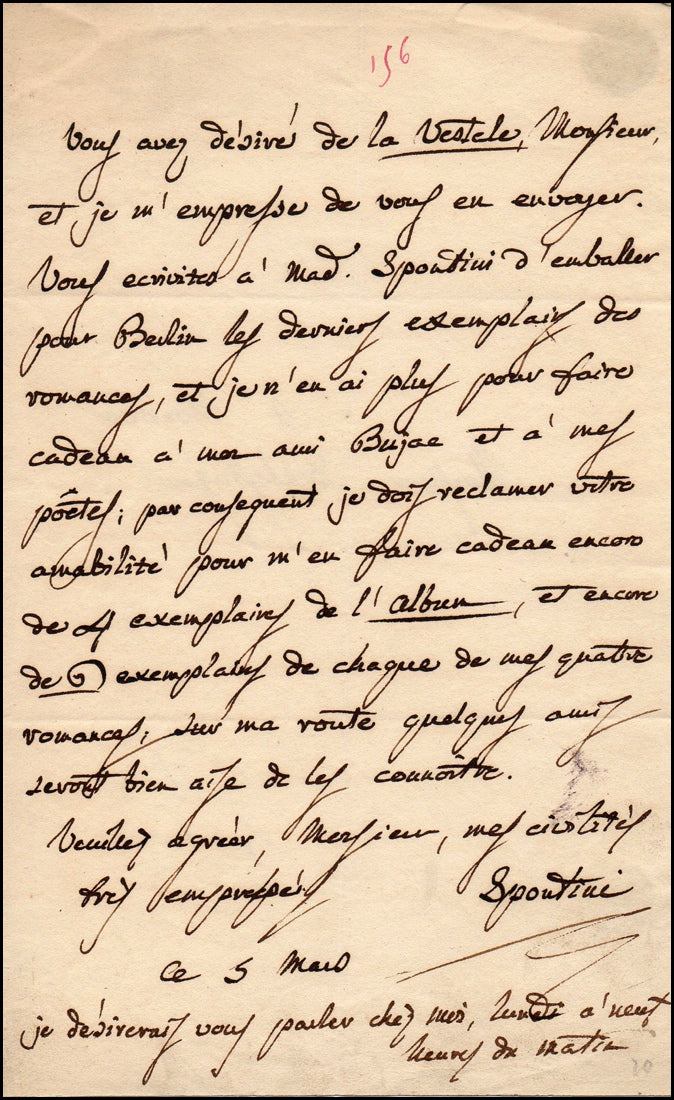 156
Vous avez désiré de la Vestale, Monsieur,
et je m'empresse de vous en envoyer.
Vous ecrivites a' Mad. Spontini d'emballer
pour Berlin les derniers exemplaires des
romances, et je n'en ai plus pour faire
cadeau a' mon ami Bujac et a' mes
poëtes; par consequent je dois reclamer votre
amabilité pour m'en faire cadeau encore
de 4 exemplaires de l'Album, et encore
de 6 exemplaires de chaque de mes quatre
romances; sur ma route quelques amis
seront bien aise de les connoître.
Veuillez agréer, Monsieur, mes civilités
très empressées
Spontini
ce 5 Mars
je désirerais vous parler chez moi, lundi a' neuf
heures du matin